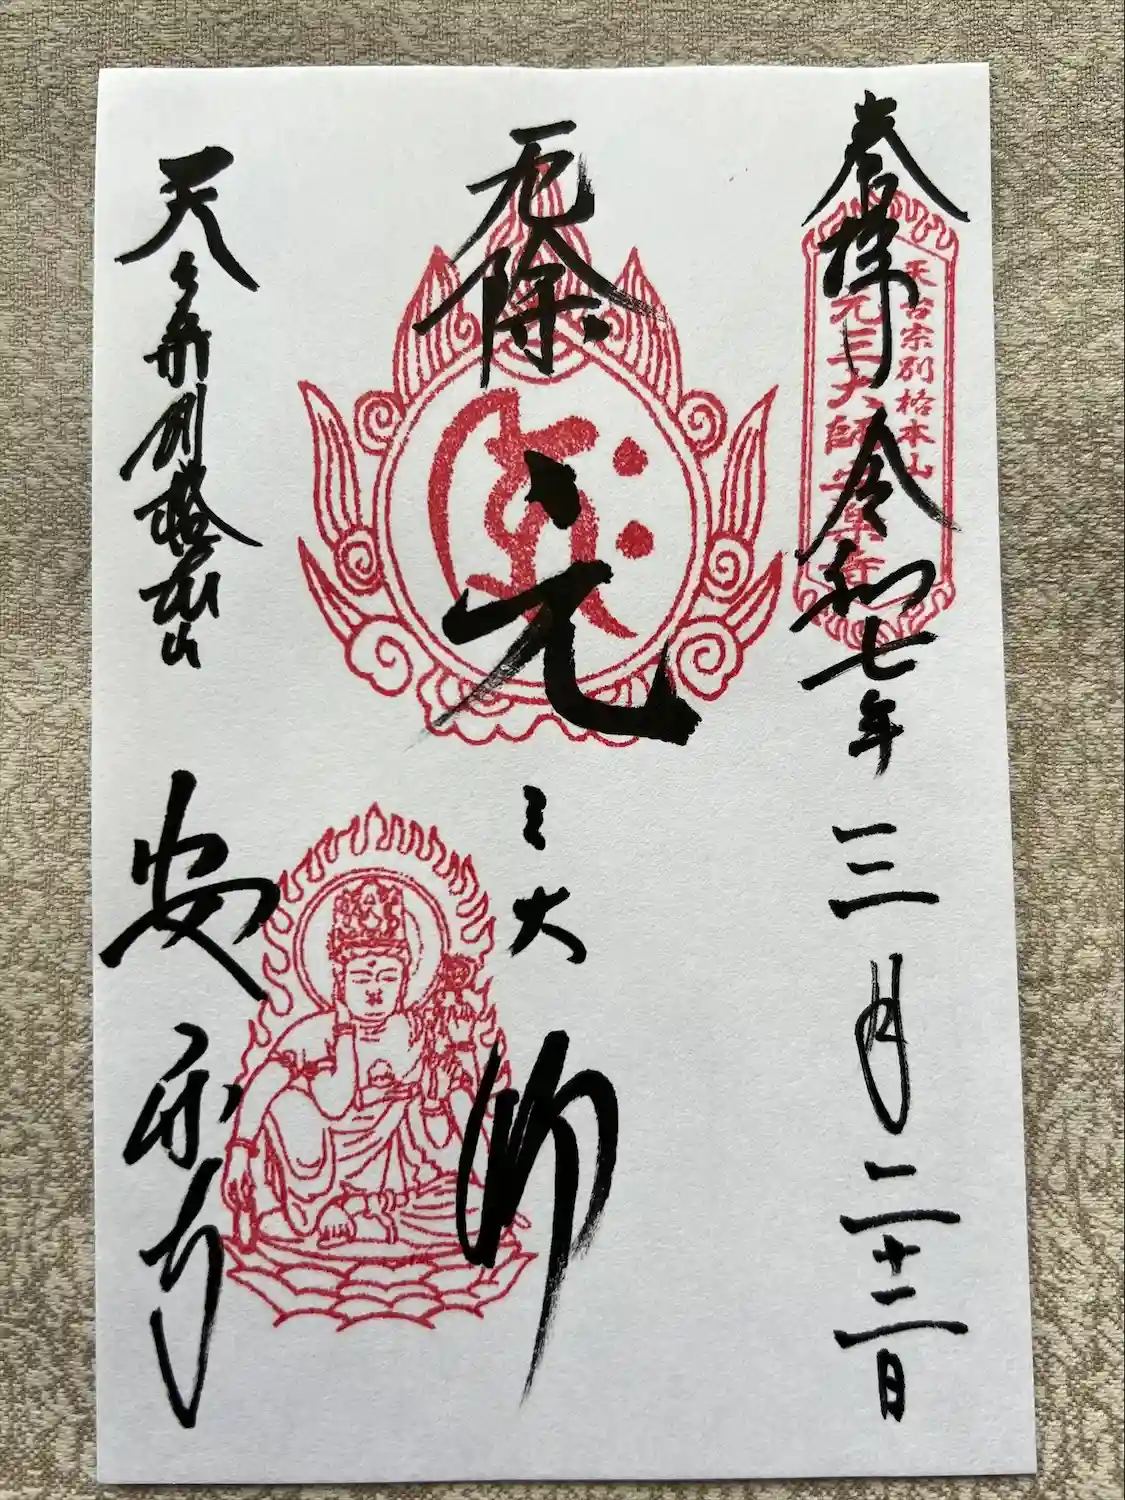 奉拝 令和七年三月二十二日
天台宗別格本山
元三大師安楽寺
厄除
元三大師
天台宗別格本山
安楽寺